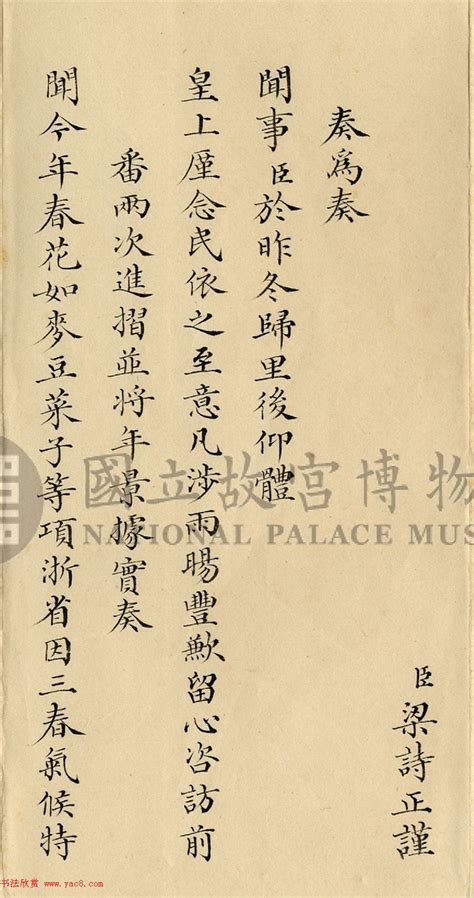 臣梁詩正謹
奏爲奏
聞事臣於昨冬歸里後仰體
皇上厪念民依之至意凡涉雨暘豐歉留心咨訪前
番兩次進摺並將年景據實奏
聞今年春花如麥豆菜子等項浙省因三春氣候特
國立故宮博物
NATIONAL PALACE MUS
书法欣赏 www.yac8.com